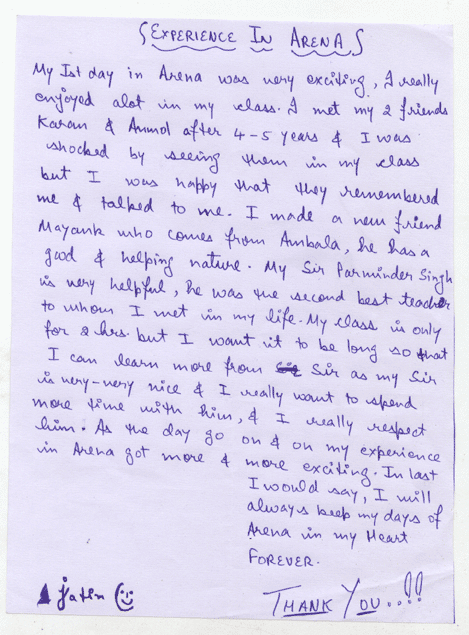 EXPERIENCE IN ARENA
My Ist day in Arena was very exciting, I really
enjoyed alot in my class. I met my 2 friends
Karan & Anmol after 4-5 years & I was
shocked by seeing them in my class
but I was happy that they remembered
me & talked to me. I made a new friend
Mayank who comes from Ambala, he has a
good & helping nature. My Sir Parminder Singh
is very helpful, he was the second best teacher
to whom I met in my life. My class is only
for 2 hrs. but I want it to be long so that
I can learn more from Sir as my Sir
is very-very nice & I really want to spend
more time with him, & I really respect
him. As the day go on & on my experience
in Arena got more & more exciting. In last
I would say, I will
always keep my days of
Arena in my Heart
FOREVER.
Jatin
THANK YOU...!!